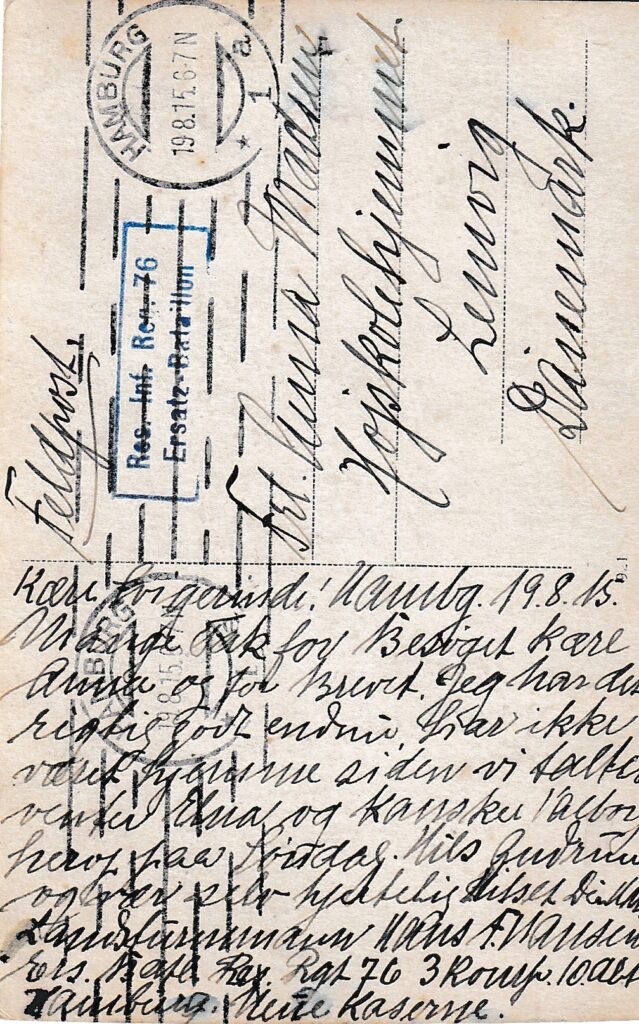 Feldpost.
HAMBURG
19.8.15.6-7N
* 1a
Res. Inf. Reg. 76
Ersatz-Bataillon
Frl. Anna Madsen
Højskolehjemmet.
Lemvig
Dänemark.
HAMBURG
19.8.15. 7N
Kære Hamбg. 19.8.15.
Mange tak for Besøget kære
Anna og for Brevet. Jeg har det
rigtig godt endnu, har ikke
været hjemme siden vi talte
venter og Kanske
herop paa Søndag. Hils Gudrun
og vær selv hjertelig Hilset
Landsturmmann Hans F. Hansen
Ers. Batl. Res. Rgt 76 3 Komp. 10. Abt
Hamburg. Neue Kaserne.